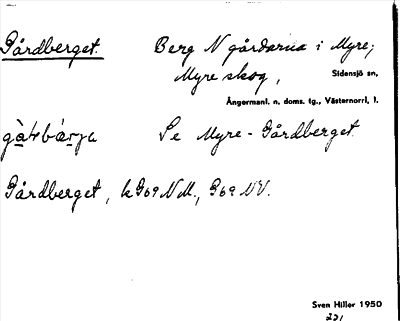 Gårdberget. Berg N gårdarna i Myre;
Myre skog, Sidensjö sn,
Ångermanl. n. doms. tg., Västernorrl. l.
Se Myre-Gårdberget.
Gårdberget, k G69 NM., G69 NV.
Sven Hiller 1950
221